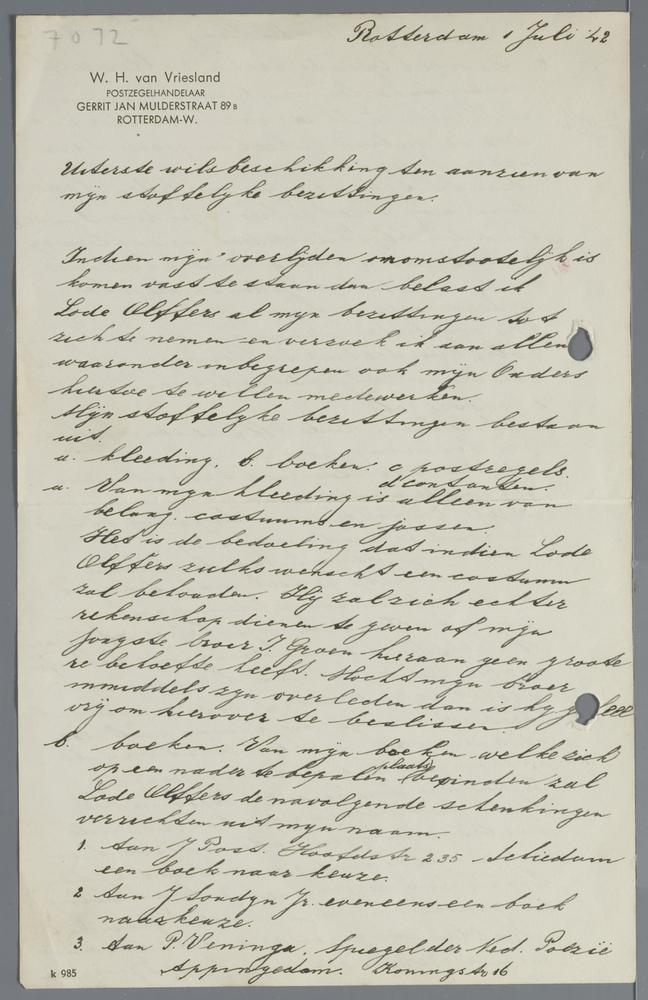 7072
Rotterdam 1 Juli '42
W. H. van Vriesland
POSTZEGELHANDELAAR
GERRIT JAN MULDERSTRAAT 89 B
ROTTERDAM-W.
Uiterste wilsbeschikking ten aanzien van
mijn stoffelijke bezittingen.
Indien mijn overlijden onomstootelijk is
komen vast te staan dan belast ik
Lode Olffers al mijn bezittingen tot
zich te nemen en verzoek ik aan allen
waaronder inbegrepen ook mijn Ouders
hiertoe te willen medewerken.
Mijn stoffelijke bezittingen bestaan
uit.
a. kleeding. b. boeken. c postzegels.
d contanten.
a. Van mijn kleeding is alleen van
belang. costuums en jassen.
Het is de bedoeling dat indien Lode
Olffers zulks wenscht een costuum
zal behouden. Hij zal zich echter
rekenschap dienen te geven of mijn
jongste broer J. Groen hieraan geen groote
re behoefte heeft. Mocht mijn broer
inmiddels zijn overleden dan is hij geheel
vrij om hierover te beslissen.
b. boeken. Van mijn boeken welke zich
op een nader te bepalen plaats bevinden zal
Lode Olffers de navolgende schenkingen
verrichten uit mijn naam.
1. Aan J Post. Hoofdstr 235 Schiedam
een boek naar keuze.
2 Aan J Sondijn Jr. eveneens een boek
naar keuze.
3. Aan P. Veninga. Spiegel der Ned. Poëzie
Appingedam. Koningstr 16
k 985